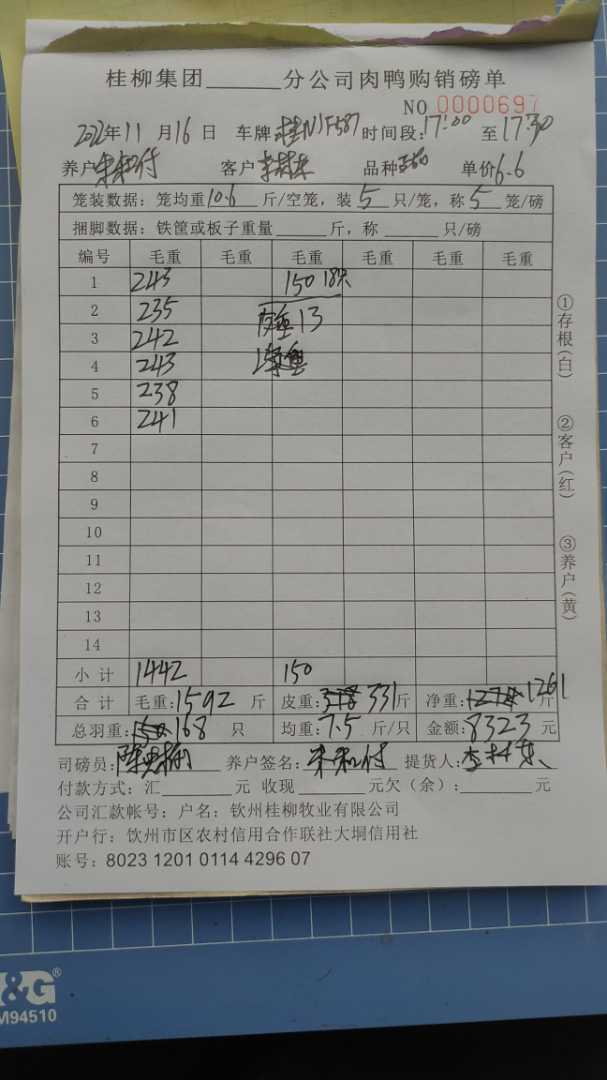 桂柳集团______分公司肉鸭购销磅单
NO 0000697
2022年11月16日 车牌桂N1F587时间段:17:00至17:30
养户朱和付 客户 品种 单价6.6
笼装数据:笼均重10.6斤/空笼,装5只/笼,称5笼/磅
捆脚数据:铁筐或板子重量______斤,称______只/磅
编号 毛重 毛重 毛重 毛重 毛重 毛重
1 243 150 18只
2 235 皮重13
3 242
4 243
5 238
6 241
7
8
9
10
11
12
13
14
小计 1442 150
合计 毛重:1592斤 皮重:331斤 净重:1261斤
总羽重:168只 均重:7.5斤/只 金额:8323元
司磅员: 养户签名:朱和付 提货人:
付款方式:汇______元 收现______元欠(余):______元
公司汇款帐号:户名:钦州桂柳牧业有限公司
开户行:钦州市区农村信用合作联社大垌信用社
账号:8023 1201 0114 4296 07
①存根(白)
②客户(红)
③养户(黄)
&G®
M94510